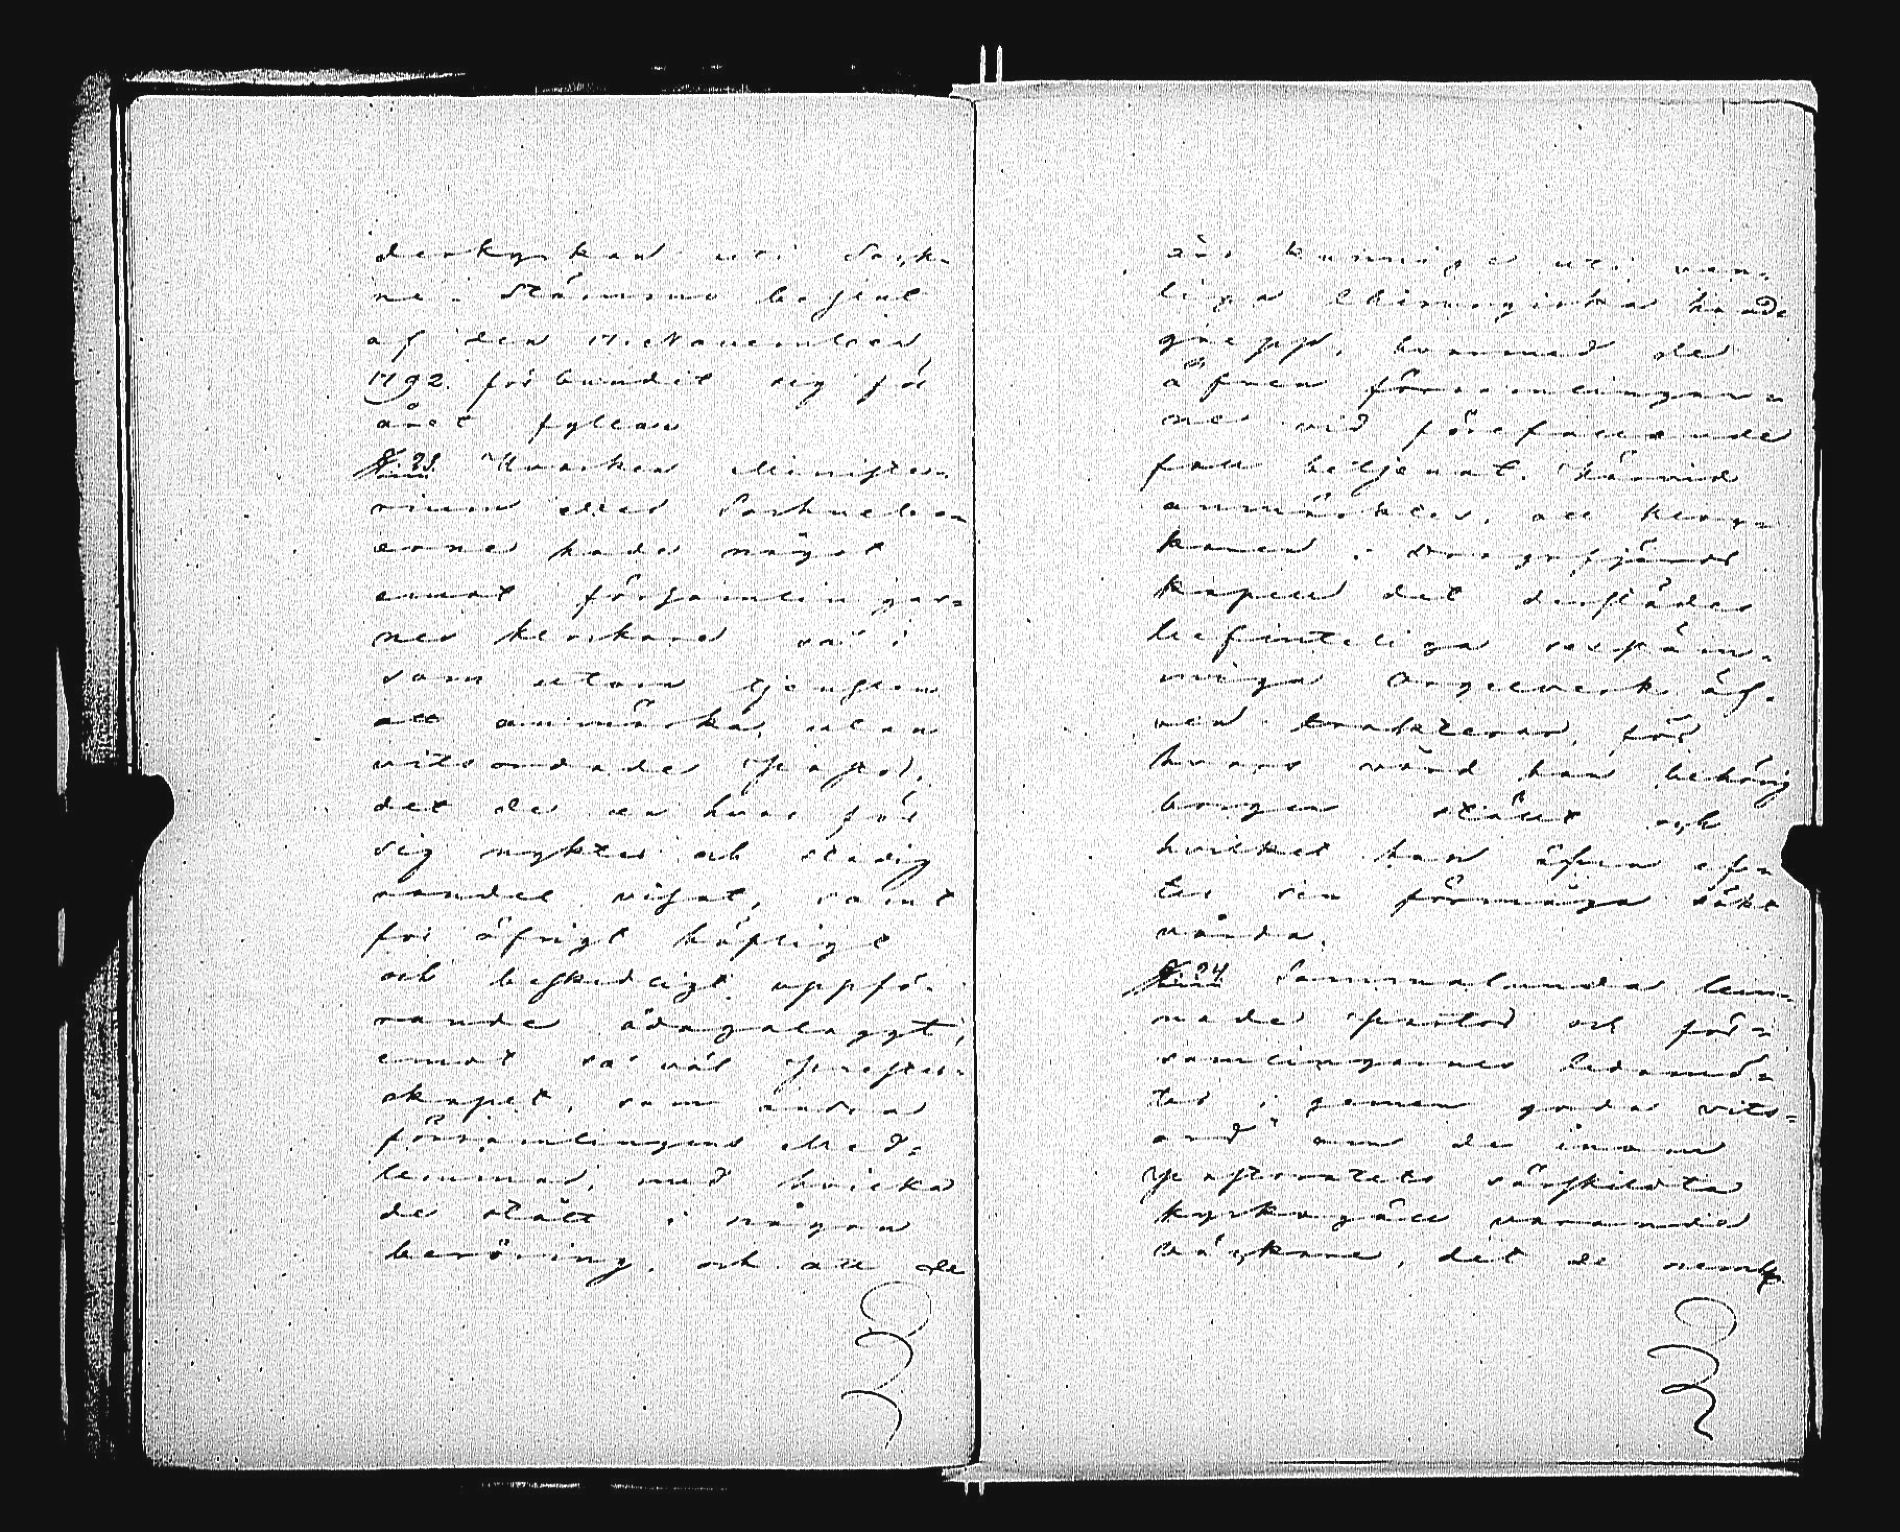 derkyrkan uti Sock-
ne Stämmo beslut
af den 11 November
1792 förbundit sig för
året fylla
§ 23. Hvarken Ministe-
rium eller Sockneboe-
erne hade något
emot församlingar-
nes klockare så i
som utom tjensten
att anmärka, utan
vitsordade Pastor,
det de en hvar för
sig nykter och stadig
vandel visat, samt
för öfrigt höfligt
och beskedligt uppfö-
rande ådagalaggt,
emot så väl Prester-
skapet, som andra
församlingens Med-
lemmar, med hvilka
de stått i någon
beröring, och att de
äro kunnige uti van-
liga Chirurgiska hand-
grepp, hvarmed de
äfven församlingar-
ne vid förefallande
fall betjenat. Härvid
anmärktes, att kloc-
karen i Dragsfjärds
kapell det derstädes
befinteliga
Orgelverk äf-
ven trakterar, för
hvars vård han behörig
borgen ställt och
hvilket han äfven ef-
ter sin förmåga sökt
vårda.
§ 24. Sammalunda lem-
nade Pastor och för-
samlingarnes ledamö-
ter i gemen goda vits-
ord om de inom
Pastoratets särskildta
kyrkogäll varande
Väckare, det de neml.